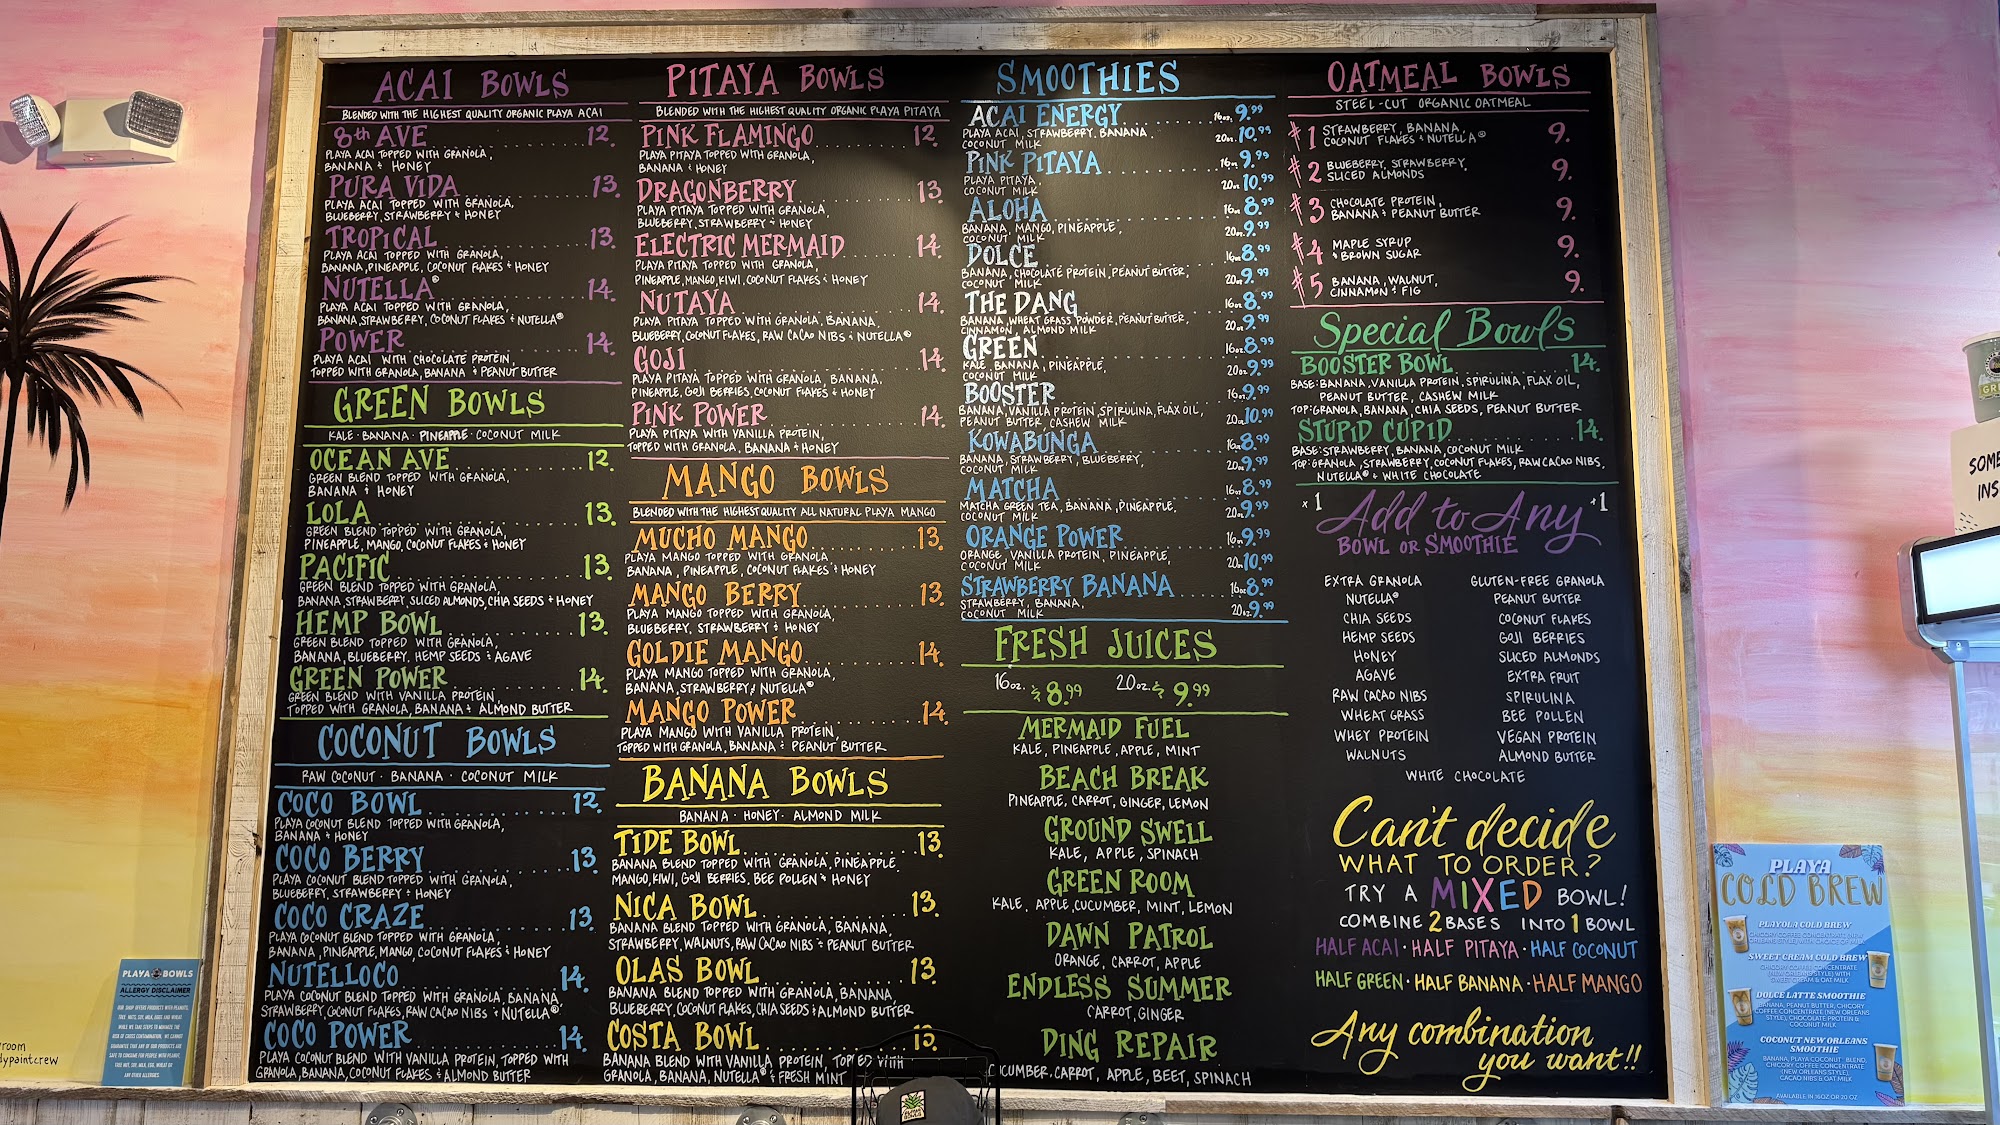 ACAI BOWLS
BLENDED WITH THE HIGHEST QUALITY ORGANIC PLAYA ACAI
8th AVE 12.
PLAYA ACAI TOPPED WITH GRANOLA,
BANANA & HONEY
PURA VIDA 13.
PLAYA ACAI TOPPED WITH GRANOLA,
BLUEBERRY, STRAWBERRY & HONEY
TROPICAL 13.
PLAYA ACAI TOPPED WITH GRANOLA,
BANANA, PINEAPPLE, COCONUT FLAKES & HONEY
NUTELLA® 14.
PLAYA ACAI TOPPED WITH GRANOLA,
BANANA, STRAWBERRY, COCONUT FLAKES & NUTELLA®
POWER 14.
PLAYA ACAI WITH CHOCOLATE PROTEIN,
TOPPED WITH GRANOLA, BANANA & PEANUT BUTTER
GREEN BOWLS
KALE · BANANA · PINEAPPLE · COCONUT MILK
OCEAN AVE 12.
GREEN BLEND TOPPED WITH GRANOLA,
BANANA & HONEY
LOLA 13.
GREEN BLEND TOPPED WITH GRANOLA,
PINEAPPLE, MANGO, COCONUT FLAKES & HONEY
PACIFIC 13.
GREEN BLEND TOPPED WITH GRANOLA,
BANANA, STRAWBERRY, SLICED ALMONDS, CHIA SEEDS & HONEY
HEMP BOWL 13.
GREEN BLEND TOPPED WITH GRANOLA,
BANANA, BLUEBERRY, HEMP SEEDS & AGAVE
GREEN POWER 14.
GREEN BLEND WITH VANILLA PROTEIN,
TOPPED WITH GRANOLA, BANANA & ALMOND BUTTER
COCONUT BOWLS
RAW COCONUT · BANANA · COCONUT MILK
COCO BOWL 12.
PLAYA COCONUT BLEND TOPPED WITH GRANOLA,
BANANA & HONEY
COCO BERRY 13.
PLAYA COCONUT BLEND TOPPED WITH GRANOLA,
BLUEBERRY, STRAWBERRY & HONEY
COCO CRAZE 13.
PLAYA COCONUT BLEND TOPPED WITH GRANOLA,
BANANA, PINEAPPLE, MANGO, COCONUT FLAKES & HONEY
NUTELLOCO 14.
PLAYA COCONUT BLEND TOPPED WITH GRANOLA, BANANA,
STRAWBERRY, COCONUT FLAKES, RAW CACAO NIBS & NUTELLA®
COCO POWER 14.
PLAYA COCONUT BLEND WITH VANILLA PROTEIN, TOPPED WITH
GRANOLA, BANANA, COCONUT FLAKES, & ALMOND BUTTER
PITAYA BOWLS
BLENDED WITH THE HIGHEST QUALITY ORGANIC PLAYA PITAYA
PINK FLAMINGO 12.
PLAYA PITAYA TOPPED WITH GRANOLA,
BANANA & HONEY
DRAGONBERRY 13.
PLAYA PITAYA TOPPED WITH GRANOLA,
BLUEBERRY, STRAWBERRY & HONEY
ELECTRIC MERMAID 14.
PLAYA PITAYA TOPPED WITH GRANOLA,
PINEAPPLE, MANGO, KIWI, COCONUT FLAKES & HONEY
NUTAYA 14.
PLAYA PITAYA TOPPED WITH GRANOLA, BANANA,
BLUEBERRY, COCONUT FLAKES, RAW CACAO NIBS & NUTELLA®
GOJI 14.
PLAYA PITAYA TOPPED WITH GRANOLA, BANANA,
PINEAPPLE, GOJI BERRIES, COCONUT FLAKES & HONEY
PINK POWER 14.
PLAYA PITAYA WITH VANILLA PROTEIN,
TOPPED WITH GRANOLA, BANANA & HONEY
MANGO BOWLS
BLENDED WITH THE HIGHEST QUALITY ALL NATURAL PLAYA MANGO
MUCHO MANGO 13.
PLAYA MANGO TOPPED WITH GRANOLA
BANANA, PINEAPPLE, COCONUT FLAKES & HONEY
MANGO BERRY 13.
PLAYA MANGO TOPPED WITH GRANOLA,
BLUEBERRY, STRAWBERRY & HONEY
GOLDIE MANGO 14.
PLAYA MANGO TOPPED WITH GRANOLA,
BANANA, STRAWBERRY, & NUTELLA®
MANGO POWER 14.
PLAYA MANGO WITH VANILLA PROTEIN,
TOPPED WITH GRANOLA, BANANA & PEANUT BUTTER
BANANA BOWLS
BANANA · HONEY · ALMOND MILK
TIDE BOWL 13.
BANANA BLEND TOPPED WITH GRANOLA, PINEAPPLE,
MANGO, KIWI, GOJI BERRIES, BEE POLLEN & HONEY
NICA BOWL 13.
BANANA BLEND TOPPED WITH GRANOLA, BANANA,
STRAWBERRY, WALNUTS, RAW CACAO NIBS & PEANUT BUTTER
OLAS BOWL 13.
BANANA BLEND TOPPED WITH GRANOLA, BANANA,
BLUEBERRY, COCONUT FLAKES, CHIA SEEDS & ALMOND BUTTER
COSTA BOWL 13.
BANANA BLEND WITH VANILLA PROTEIN, TOPPED WITH
GRANOLA, BANANA, NUTELLA® & FRESH MINT
SMOOTHIES
ACAI ENERGY 16oz. 9.99
PLAYA ACAI, STRAWBERRY, BANANA, 20oz. 10.99
COCONUT MILK
PINK PITAYA 16oz. 9.99
PLAYA PITAYA, 20oz. 10.99
COCONUT MILK
ALOHA 16oz 8.99
BANANA, MANGO, PINEAPPLE, 20oz. 9.99
COCONUT MILK
DOLCE 16oz 8.99
BANANA, CHOCOLATE PROTEIN, PEANUT BUTTER, 20oz 9.99
COCONUT MILK
THE DANG 16oz 8.99
BANANA, WHEAT GRASS POWDER, PEANUT BUTTER, 20oz 9.99
CINNAMON, ALMOND MILK
GREEN 16oz 8.99
KALE, BANANA, PINEAPPLE, 20oz 9.99
COCONUT MILK
BOOSTER 16oz 9.99
BANANA, VANILLA PROTEIN, SPIRULINA, FLAX OIL, 20oz 10.99
PEANUT BUTTER, CASHEW MILK
KOWABUNGA 16oz 8.99
BANANA, STRAWBERRY, BLUEBERRY, 20oz 9.99
COCONUT MILK
MATCHA 16oz 8.99
MATCHA GREEN TEA, BANANA, PINEAPPLE, 20oz 9.99
COCONUT MILK
ORANGE POWER 16oz 9.99
ORANGE, VANILLA PROTEIN, PINEAPPLE, 20oz 10.99
COCONUT MILK
STRAWBERRY BANANA 16oz 8.99
STRAWBERRY, BANANA, 20oz 9.99
COCONUT MILK
FRESH JUICES
16oz. $8.99 20oz. $9.99
MERMAID FUEL
KALE, PINEAPPLE, APPLE, MINT
BEACH BREAK
PINEAPPLE, CARROT, GINGER, LEMON
GROUND SWELL
KALE, APPLE, SPINACH
GREEN ROOM
KALE, APPLE, CUCUMBER, MINT, LEMON
DAWN PATROL
ORANGE, CARROT, APPLE
ENDLESS SUMMER
CARROT, GINGER
DING REPAIR
CUCUMBER, CARROT, APPLE, BEET, SPINACH
OATMEAL BOWLS
STEEL-CUT ORGANIC OATMEAL
#1 STRAWBERRY, BANANA, 9.
COCONUT FLAKES & NUTELLA®
#2 BLUEBERRY, STRAWBERRY, 9.
SLICED ALMONDS
#3 CHOCOLATE PROTEIN, 9.
BANANA & PEANUT BUTTER
#4 MAPLE SYRUP 9.
& BROWN SUGAR
#5 BANANA, WALNUT, 9.
CINNAMON & FIG
Special Bowls
BOOSTER BOWL 14.
BASE: BANANA, VANILLA PROTEIN, SPIRULINA, FLAX OIL,
PEANUT BUTTER, CASHEW MILK
TOP: GRANOLA, BANANA, CHIA SEEDS, PEANUT BUTTER
STUPID CUPID 14.
BASE: STRAWBERRY, BANANA, COCONUT MILK
TOP: GRANOLA, STRAWBERRY, COCONUT FLAKES, RAW CACAO NIBS,
NUTELLA® & WHITE CHOCOLATE
+1 Add to Any +1
BOWL OR SMOOTHIE
EXTRA GRANOLA GLUTEN-FREE GRANOLA
NUTELLA® PEANUT BUTTER
CHIA SEEDS COCONUT FLAKES
HEMP SEEDS GOJI BERRIES
HONEY SLICED ALMONDS
AGAVE EXTRA FRUIT
RAW CACAO NIBS SPIRULINA
WHEAT GRASS BEE POLLEN
WHEY PROTEIN VEGAN PROTEIN
WALNUTS ALMOND BUTTER
WHITE CHOCOLATE
Can't decide
WHAT TO ORDER?
TRY A MIXED BOWL!
COMBINE 2 BASES INTO 1 BOWL
HALF ACAI · HALF PITAYA · HALF COCONUT
HALF GREEN · HALF BANANA · HALF MANGO
Any combination
you want!!
SOME
INS
PLAYA BOWLS
ALLERGY DISCLAIMER
OUR SHOP OFFERS PRODUCTS WITH PEANUTS,
TREE NUTS, SOY, MILK, EGGS AND WHEAT.
WHILE WE TAKE STEPS TO MINIMIZE THE
RISK OF CROSS CONTAMINATION, WE CANNOT
GUARANTEE THAT ANY OF OUR PRODUCTS ARE
SAFE TO CONSUME FOR PEOPLE WITH PEANUT,
TREE NUT, SOY, MILK, EGG, WHEAT OR
ANY OTHER ALLERGIES.
room
dypaintcrew
PLAYA
COLD BREW
PLAYOLA COLD BREW
CHICORY COFFEE CONCENTRATE (NEW
ORLEANS STYLE) WITH CHOICE OF MILK
SWEET CREAM COLD BREW
CHICORY COFFEE CONCENTRATE
(NEW ORLEANS STYLE) WITH
SWEET CREAM & OAT MILK
DOLCE LATTE SMOOTHIE
BANANA, PEANUT BUTTER, CHICORY
COFFEE CONCENTRATE (NEW ORLEANS
STYLE), CHOCOLATE PROTEIN &
COCONUT MILK
COCONUT NEW ORLEANS
SMOOTHIE
BANANA, PLAYA COCONUT BLEND,
CHICORY COFFEE CONCENTRATE
(NEW ORLEANS STYLE),
CACAO NIBS & OAT MILK
AVAILABLE IN 16OZ OR 20 OZ